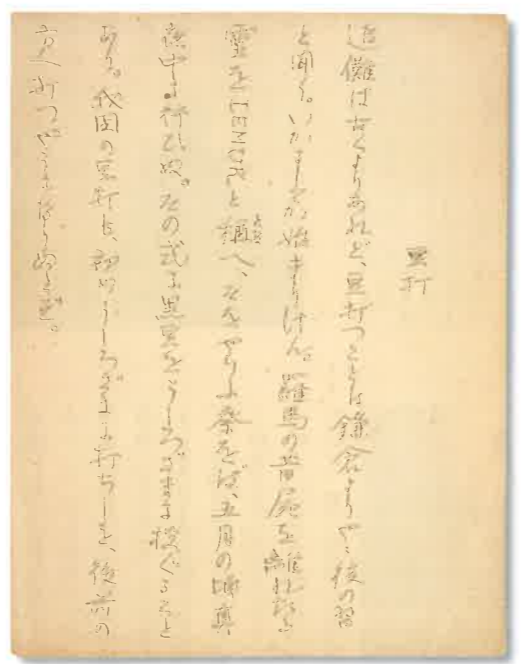 豆打
追儺は古くよりあれど、豆打つことは鎌倉よりやゝ後の習
と聞く。いかにしてか始まりけん。羅馬の昔屍を離れたる
霊を LEMUR と稱へ、それをやらふ祭をば、五月の晦真
夜中に行ひぬ。その式に黒豆をうしろざまに投ぐること
あり。我国の豆打も、初めうしろざまに打ちしを、後前の
方へ打つやうになりぬとぞ。